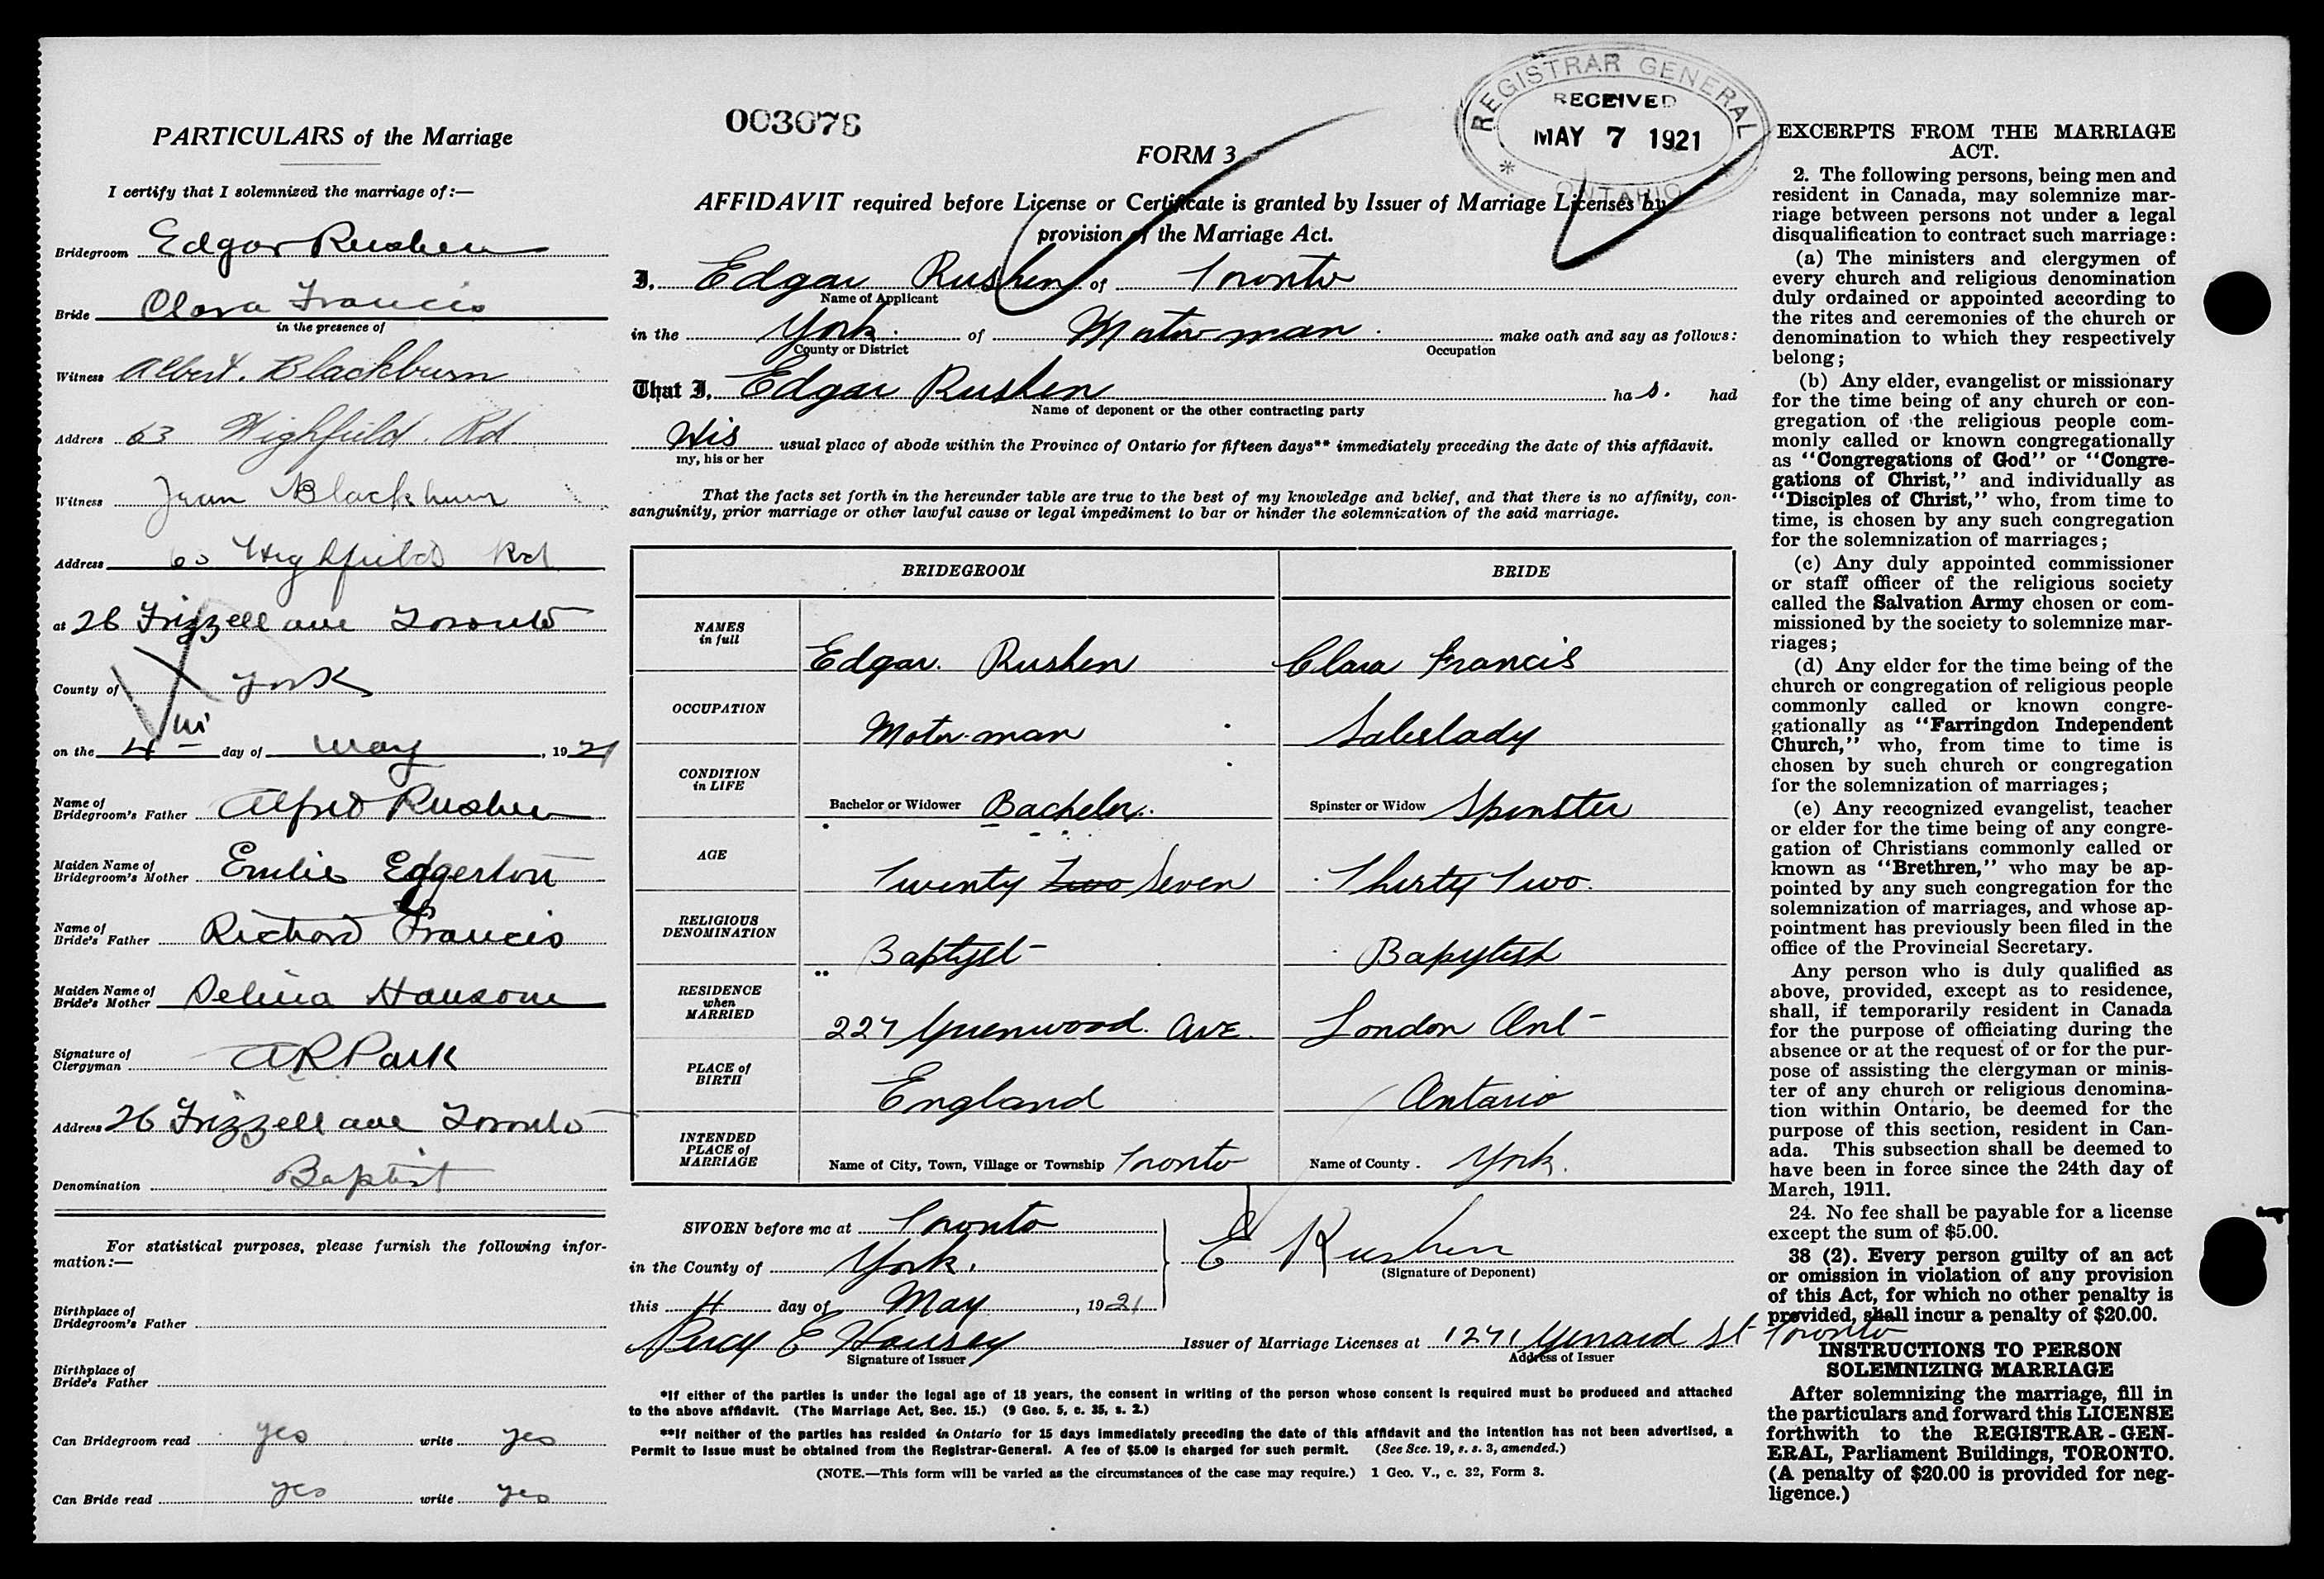 PARTICULARS of the Marriage
I certify that I solemnized the marriage of:—
Bridegroom Edgar Rushen
Bride Clara Francis
in the presence of
Witness Albert. Blackburn
Address 63 Highfield. Rd
Witness Jean Blackburn
Address 63 Highfield Rd
at 26 Frizzell ave Toronto
County of York
on the 4th day of May, 1921
Name of
Bridegroom's Father Alfred Rushen
Maiden Name of
Bridegroom's Mother Emilie Edgerton
Name of
Bride's Father Richard Francis
Maiden Name of
Bride's Mother Selina Hansom
Signature of
Clergyman A R Park
Address 26 Frizzell ave Toronto
Denomination Baptist
For statistical purposes, please furnish the following infor-
mation:—
Birthplace of
Bridegroom's Father
Birthplace of
Bride's Father
Can Bridegroom read yes write yes
Can Bride read yes write yes
003076
REGISTRAR GENERAL
RECEIVED
MAY 7 1921
ONTARIO
FORM 3
AFFIDAVIT required before License or Certificate is granted by Issuer of Marriage Licenses by
provision of the Marriage Act.
I, Edgar Rushen of Toronto
Name of Applicant
in the York of Motor-man make oath and say as follows:
County or District Occupation
That I, Edgar Rushen has. had
Name of deponent or the other contracting party
His usual place of abode within the Province of Ontario for fifteen days** immediately preceding the date of this affidavit.
my, his or her
That the facts set forth in the hereunder table are true to the best of my knowledge and belief, and that there is no affinity, con-
sanguinity, prior marriage or other lawful cause or legal impediment to bar or hinder the solemnization of the said marriage.
BRIDEGROOM BRIDE
NAMES
in full Edgar. Rushen Clara Francis
OCCUPATION Motor-man Saleslady
CONDITION
in LIFE Bachelor or Widower Bachelor. Spinster or Widow Spinster
AGE Twenty Two Seven Thirty Two.
RELIGIOUS
DENOMINATION Baptyst Bapytist
RESIDENCE
when
MARRIED 227 Greenwood. Ave. London Ont
PLACE of
BIRTH England Ontario
INTENDED
PLACE of
MARRIAGE Name of City, Town, Village or Township Toronto Name of County. York.
SWORN before me at Toronto
in the County of York.
this 4 day of May, 1921
E Rushen
(Signature of Deponent)
Percy E Housey Issuer of Marriage Licenses at 1271 Gerrard St Toronto
Signature of Issuer Address of Issuer
*If either of the parties is under the legal age of 18 years, the consent in writing of the person whose consent is required must be produced and attached
to the above affidavit. (The Marriage Act, Sec. 15.) (9 Geo. 5, c. 35, s. 2.)
**If neither of the parties has resided in Ontario for 15 days immediately preceding the date of this affidavit and the intention has not been advertised, a
Permit to issue must be obtained from the Registrar-General. A fee of $5.00 is charged for such permit. (See Sec. 19, s. s. 3, amended.)
(NOTE.—This form will be varied as the circumstances of the case may require.) 1 Geo. V., c. 32, Form 3.
EXCERPTS FROM THE MARRIAGE
ACT.
2. The following persons, being men and
resident in Canada, may solemnize mar-
riage between persons not under a legal
disqualification to contract such marriage:
(a) The ministers and clergymen of
every church and religious denomination
duly ordained or appointed according to
the rites and ceremonies of the church or
denomination to which they respectively
belong;
(b) Any elder, evangelist or missionary
for the time being of any church or con-
gregation of the religious people com-
monly called or known congregationally
as "Congregations of God" or "Congre-
gations of Christ," and individually as
"Disciples of Christ," who, from time to
time, is chosen by any such congregation
for the solemnization of marriages;
(c) Any duly appointed commissioner
or staff officer of the religious society
called the Salvation Army chosen or com-
missioned by the society to solemnize mar-
riages;
(d) Any elder for the time being of the
church or congregation of religious people
commonly called or known congre-
gationally as "Farringdon Independent
Church," who, from time to time is
chosen by such church or congregation
for the solemnization of marriages;
(e) Any recognized evangelist, teacher
or elder for the time being of any congre-
gation of Christians commonly called or
known as "Brethren," who may be ap-
pointed by any such congregation for the
solemnization of marriages, and whose ap-
pointment has previously been filed in the
office of the Provincial Secretary.
Any person who is duly qualified as
above, provided, except as to residence,
shall, if temporarily resident in Canada
for the purpose of officiating during the
absence or at the request of or for the pur-
pose of assisting the clergyman or minis-
ter of any church or religious denomina-
tion within Ontario, be deemed for the
purpose of this section, resident in Can-
ada. This subsection shall be deemed to
have been in force since the 24th day of
March, 1911.
24. No fee shall be payable for a license
except the sum of $5.00.
38 (2). Every person guilty of an act
or omission in violation of any provision
of this Act, for which no other penalty is
provided, shall incur a penalty of $20.00.
INSTRUCTIONS TO PERSON
SOLEMNIZING MARRIAGE
After solemnizing the marriage, fill in
the particulars and forward this LICENSE
forthwith to the REGISTRAR-GEN-
ERAL, Parliament Buildings, TORONTO.
(A penalty of $20.00 is provided for neg-
ligence.)